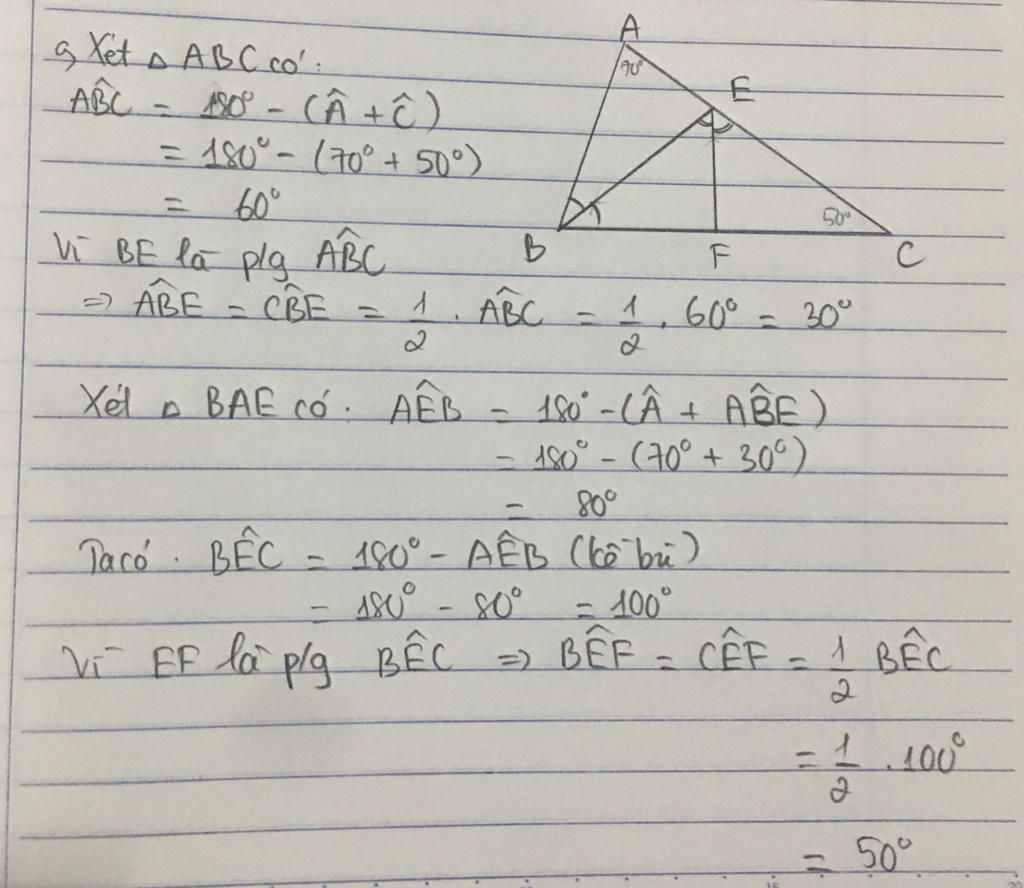 a, Xét △ ABC có:
AB̂C = 180° - (Â + Ĉ)
= 180° - (70° + 50°)
= 60°
Vì BE là p/g AB̂C
⇒ AB̂E = CB̂E = 1/2 . AB̂C = 1/2 . 60° = 30°
Xét △ BAE có. AÊB = 180° - (Â + AB̂E)
= 180° - (70° + 30°)
= 80°
Ta có. BÊC = 180° - AÊB (kề bù)
= 180° - 80° = 100°
Vì EF là p/g BÊC ⇒ BÊF = CÊF = 1/2 BÊC
= 1/2 . 100°
= 50°
A
70°
E
50°
B
F
C